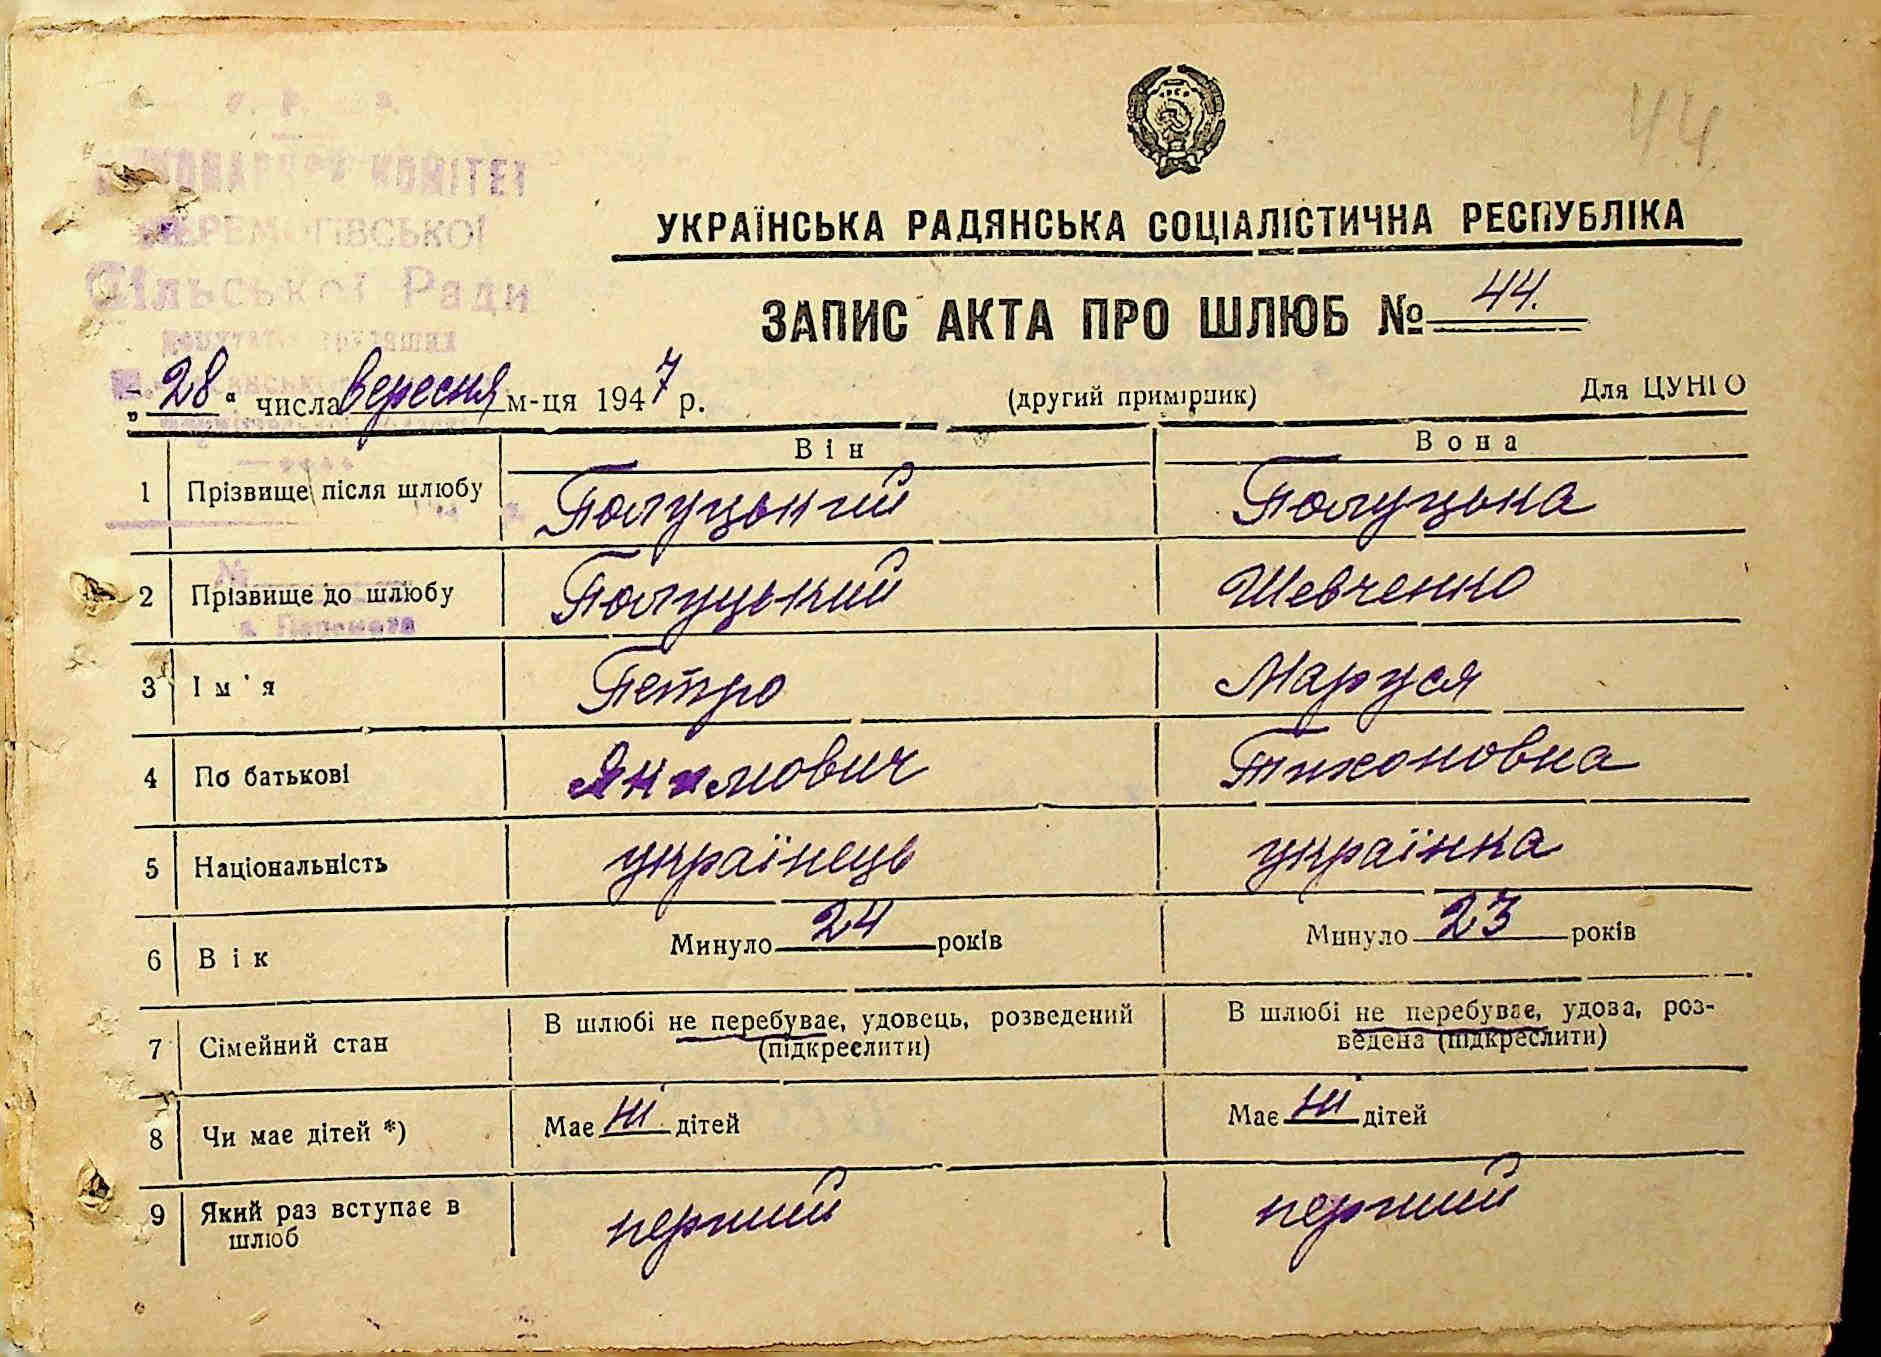 44.
КОМІТЕТ
Сільської Ради
УКРАЇНСЬКА РАДЯНСЬКА СОЦІАЛІСТИЧНА РЕСПУБЛІКА
ЗАПИС АКТА ПРО ШЛЮБ № 44.
„28“ числа вересня м-ця 1947 р. (другий примірник) Для ЦУНГО
Він Вона
1 Прізвище після шлюбу Полуцький Полуцька
2 Прізвище до шлюбу Полуцький Шевченко
3 Ім'я Петро Маруся
4 По батькові Тихоновна
5 Національність українець українка
6 Вік Минуло 24 років Минуло 23 років
7 Сімейний стан В шлюбі не перебуває, удовець, розведений (підкреслити) В шлюбі не перебуває, удова, роз-
ведена (підкреслити)
8 Чи має дітей *) Має ні дітей Має ні дітей
9 Який раз вступає в шлюб перший перший